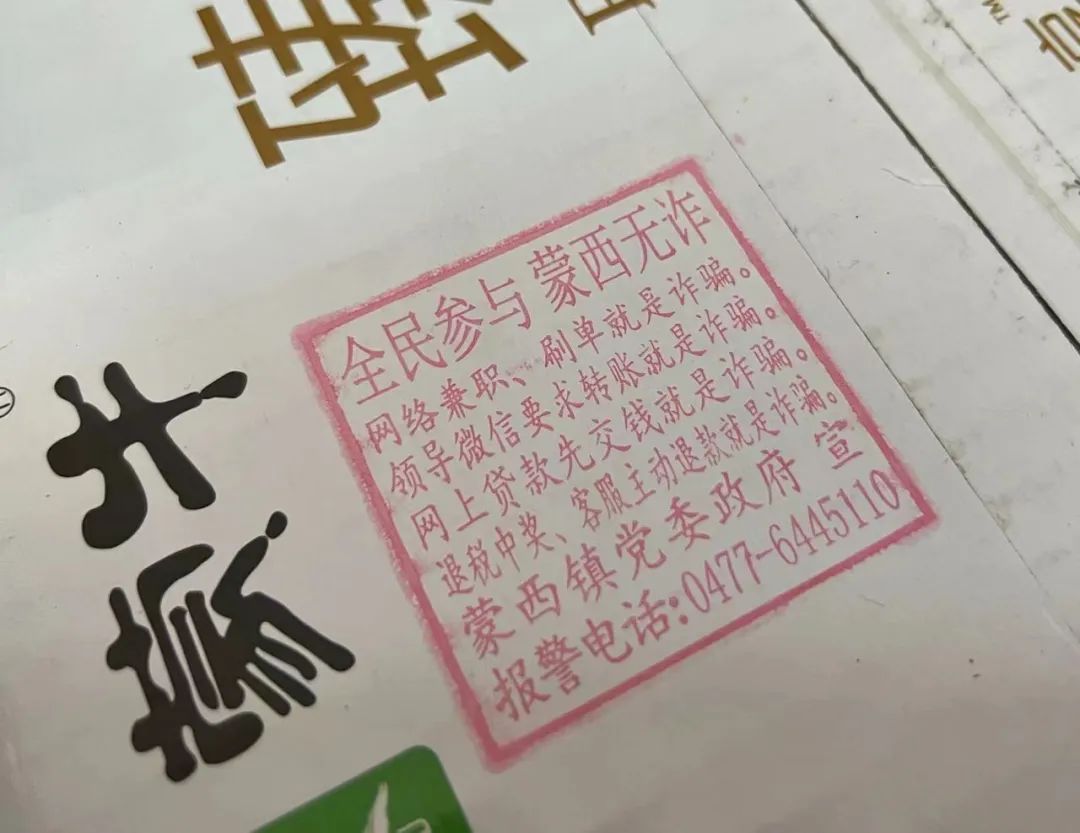 全民参与 蒙西无诈
网络兼职、刷单就是诈骗。
领导微信要求转账就是诈骗。
网上贷款先交钱就是诈骗。
退税中奖、客服主动退款就是诈骗。
蒙西镇党委政府 宣
报警电话:0477-6445110
蒙牛